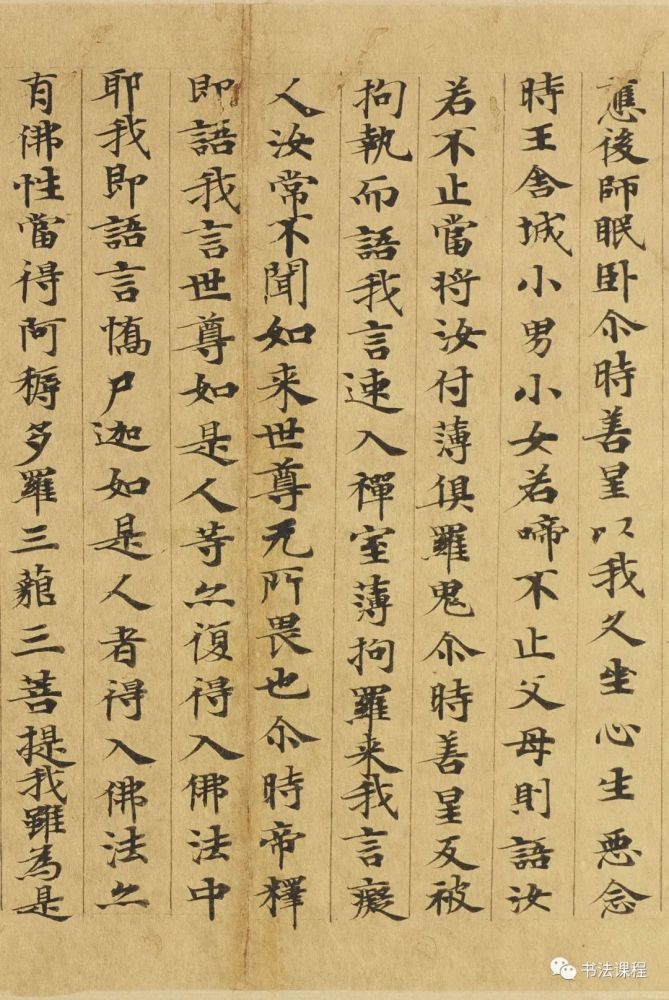 應後師眠卧尒時善星以我久坐心生惡念
時王舍城小男小女若啼不止父母則語汝
若不止當將汝付薄俱羅鬼尒時善星反被
拘執而語我言速入禪室薄拘羅来我言癡
人汝常不聞如来世尊无所畏也尒時帝釋
即語我言世尊如是人等亦復得入佛法中
耶我即語言憍尸迦如是人者得入佛法亦
有佛性當得阿耨多羅三藐三菩提我雖為是
书法课程